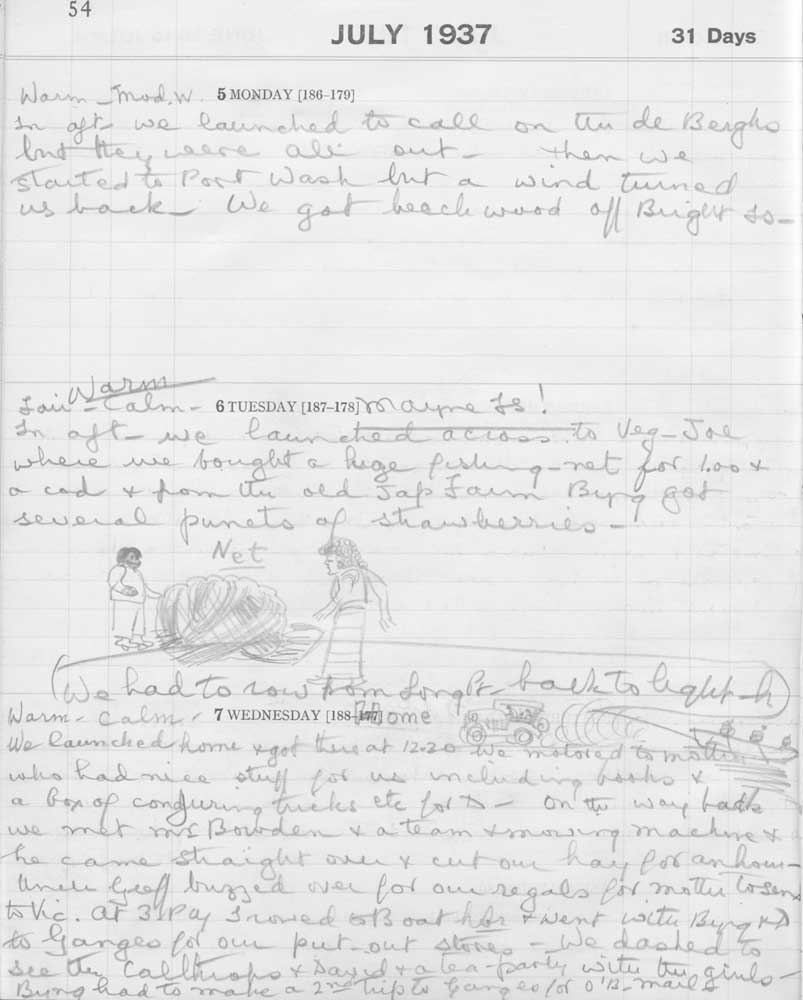 54
JULY 1937 31 Days
Warm - Mod. W. 5 MONDAY [186-179]
In aft- we launched to call on the de Berghs
but they were all out - then we
started to Port Wash but a wind turned
us back - We got beech wood off Bright Is -
Warm
Fair - Calm - 6 TUESDAY [187-178] Mayne Is!
In aft - we launched across to Veg - Joe
where we bought a huge fishing - net for 1.00 &
a cod & from the old Jap Farm Byng got
several punets of strawberries -
Net
(We had to row from Long Pt - back to light - h)
Warm - Calm - 7 WEDNESDAY [188-177] Home
We launched home & got there at 12.20 We motored to mother
who had nice stuff for us including books &
a box of conjuring tricks etc for D - On the way back
we met Mr Bowden & a team & mowing machine &
he came straight over & cut our hay for an hour -
Uncle Geoff buzzed over for our regals for mother to send
to Vic. At 3 I rowed to Boat hbr & went with Byng & D
to Ganges for our put-out stores - We dashed to
see the Calthrops & David & a tea-party with the girls -
Byng had to make a 2nd trip to Ganges for O'B - mails